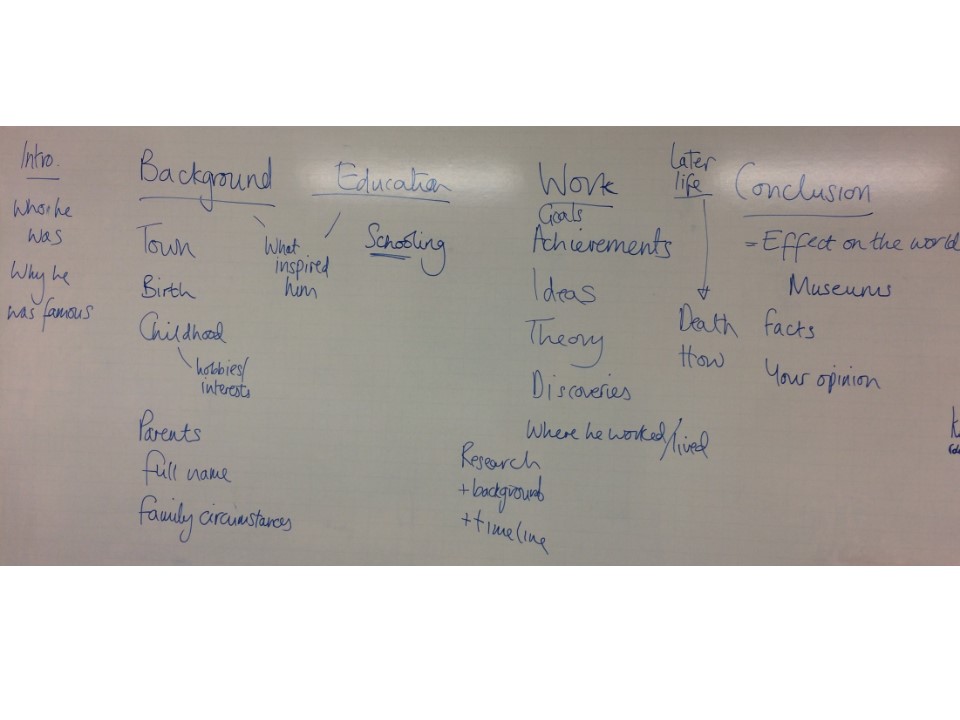 Intro.
Who he
was
Why he
was famous
Background
Town
Birth
Childhood
hobbies/
interests
Parents
full name
family circumstances
What
inspired
him
Education
Schooling
Work
Goals
Achievements
Ideas
Theory
Discoveries
Where he worked/lived
Research
+background
+timeline
Later
life
Death
How
Conclusion
- Effect on the world
Museums
facts
Your opinion